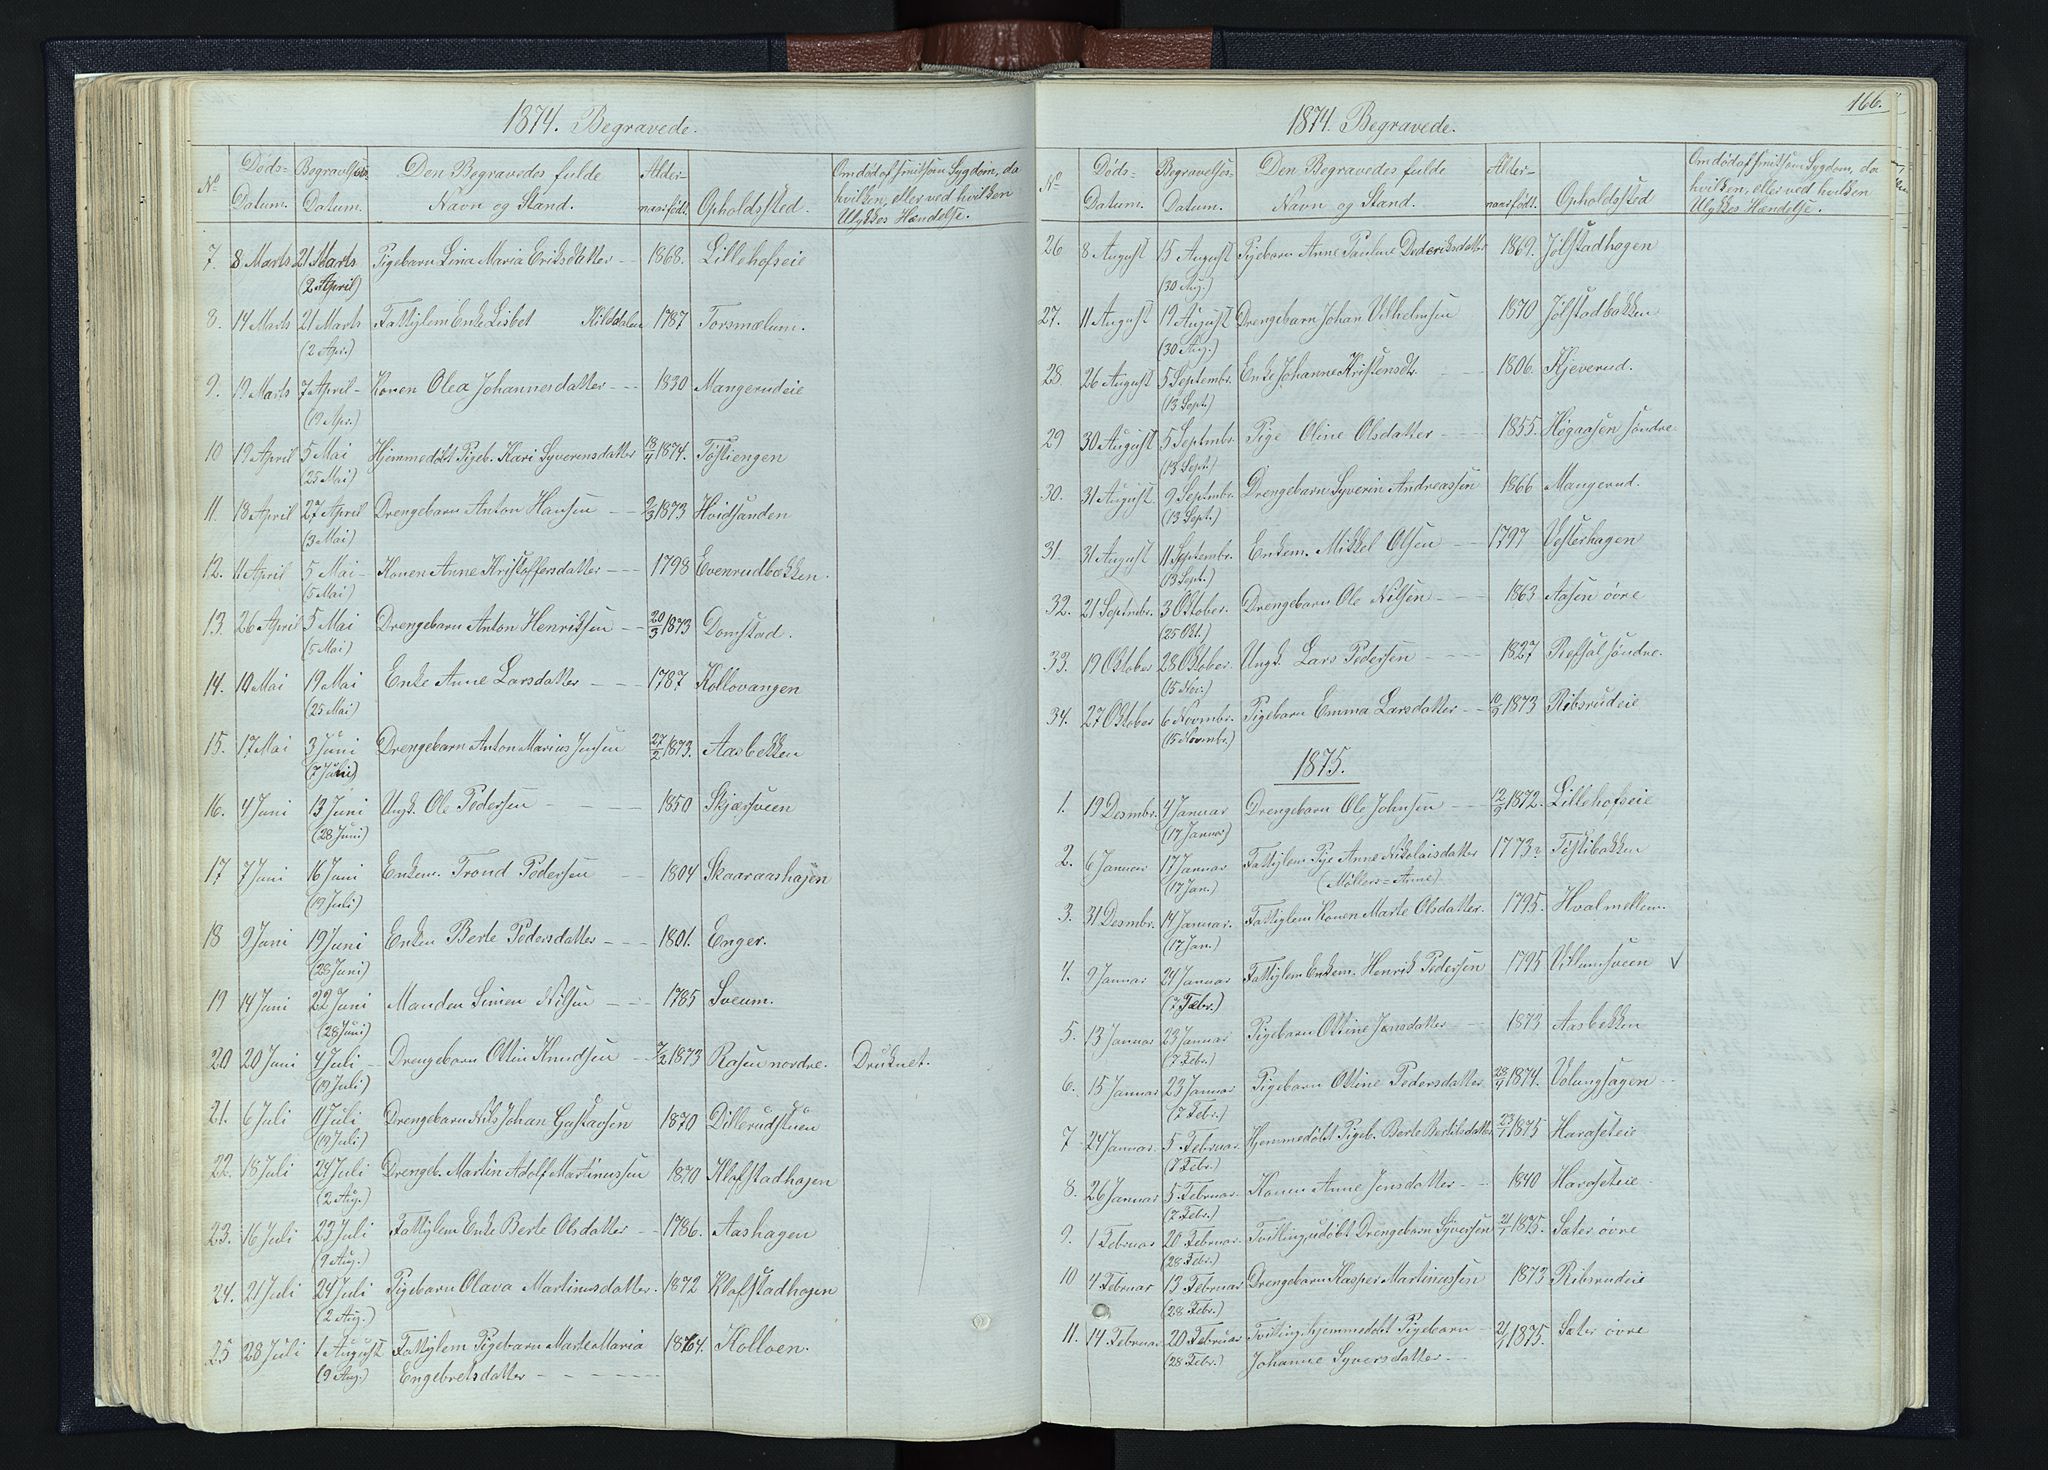 1874. Begravede.
No Døds-Datum. Begravelses-Datum. Den Begravedes fulde Navn og Stand. Alder naar født. Opholdssted. Om død af smitsom Sygdom, da hvilken, eller ved hvilken Ulykkes Hændelse.
7. 8 Marts 21 Marts Pigebarn Lina Maria Eriksdatter -- 1868. Lillehofseie
(2 April)
8. 14 Marts 21 Marts Fattiglem Enke Lisbet Kildalen 1787 Torsmælum.
(2 Apr.)
9. 19 Marts 7 April- Konen Olea Johannesdatter --- 1830 Mangerudeie
(19 Apr.)
10 19 April 5 Mai Hjemmedøbt Pigeb. Kari Syverensdatter 13/4 1874. Tøstiengen
(25 Mai)
11. 18 April 27 April Drengebarn Anton Hansen -- 2/3 1873 Hvidsanden
(3 Mai)
12. 11 April 5 Mai- Konen Anne Kristoffersdatter --- 1798 Evenrudbakken.
(5 Mai)
13. 26 April 5 Mai Drengebarn Anton Henriksen -- 20/3 1873 Domstad.
(5 Mai)
14. 10 Mai 19 Mai Enke Anne Larsdatter --- 1787 Kollovangen
(25 Mai)
15. 17 Mai 3 Juni Drengebarn Anton Marius Jensen 27/2 1873. Aasbekken
(7 Juli)
16. 4 Juni 13 Juni Ungk. Ole Pedersen --- 1850 Skjærsveen
(28 Juni)
17 7 Juni 16 Juni Enkem. Trond Pedersen - 1804 Skaaraashagen
(19 Juli)
18 9 Juni 19 Juni Enken Berte Pedersdatter --- 1801. Enger.
(28 Juni)
19 14 Juni 22 Juni Manden Simen Nilsen --- 1785 Sveum.
(28 Juni)
20 20 Juni 4 Juli - Drengebarn Ottin Knudsen -- 7/2 1873 Rosen nordre. Druknet.
(19 Juli)
21. 6 Juli 11 Juli Drengebarn Nils Johan Gustavsen 1870 Dillerudstuen
(19 Juli)
22. 18 Juli 24 Juli Drengeb. Martin Adolf Martinussen 1870 Klofstadhagen
(2 Aug.)
23. 16 Juli 23 Juli Fattiglem Enke Berte Olsdatter -- 1786. Aashagen
(9 Aug.)
24. 21 Juli 24 Juli Pigebarn Olava Martinusdatter. 1872 Klofstadhagen
(2 Aug.)
25 28 Juli 1 August Fattiglem Pigebarn Marte Maria 1864. Kolloen.
(9 Aug.) Engebretsdatter -----
166.
1874. Begravede.
No Døds-Datum. Begravelses-Datum. Den Begravedes fulde Navn og Stand. Alder naar født. Opholdssted Om død af smitsom Sygdom, da hvilken, eller ved hvilken Ulykkes Hændelse.
26 8 August 15 August Pigebarn Anne Pauline Dideriksdatter 1869. Jølstadhagen
(30 Aug.)
27. 11 August 19 August Drengebarn Johan Vilhelmsen 1870 Jølstadbakken
(30 Aug.)
28. 26 August 5 Septembr. Enke Johanne Kristensdt. 1806. Kjeverud.
(13 Sept.)
29 30 August 5 Septmbr. Pige Oline Olsdatter --- 1855. Høgaasen søndre.
(13 Sept.)
30. 31 August 9 Septmbr. Drengebarn Syverin Andreassen 1866 Mangerud.
(13 Sept.)
31. 31 August 11 Septembr. Enkem. Mikkel Olsen --- 1797 Vesterhagen
(13 Sept.)
32. 21 Septmbr. 3 Oktober. Drengebarn Ole Nilsen --- 1863 Aasen øvre
(25 Okt.)
33. 19 Oktober 28 Oktober Ungk. Lars Pedersen --- 1827 Refsal søndre.
(15 Nov.)
34. 27 Oktober 6 Novmbr. Pigebarn Emma Larsdatter -- 10/9 1873 Ribsrudeie
(15 Novmbr.)
1875.
1. 19 Desmbr. 4 Januar Drengebarn Ole Johnsen --- 12/9 1872. Lillehofseie
(17 Januar)
2. 6 Januar 17 Januar Fattiglem Pige Anne Nikolaisdatter 1773? Tøstibakken
(17 Jan.) (Møllers-Anne)
3. 31 Desmbr. 14 Januar. Fattiglem Konen Marte Olsdatter. 1795. Hval mellem.
(17 Jan.)
4. 9 Januar 24 Januar Fattiglem Enkem. Henrik Pedersen 1795 Villumsveen √
(7 Febr.)
5. 13 Januar 23 Januar Pigebarn Ottine Jensdatter -- 1873 Aasbekken
(7 Febr.)
6. 15 Januar 23 Januar Pigebarn Ottine Pedersdatter 28/9 1874. Volungsagen
(7 Febr.)
7 24 Januar. 5 Februar Hjemmedøbt Pigeb. Berte Bertilsdatter 23/1 1875 Haraseteie
(7 Febr.)
8. 26 Januar 5 Februar. Konen Anne Jensdatter -- 1840 Haraseteie
(7 Febr.)
9. 1 Februar 20 Februar. Tvilling, udøbt Drengebarn Syversen 21/1 1875. Sater øvre
(28 Febr.)
10 4 Februar 13 Februar Drengebarn Kasper Martinussen 1873 Ribsrudeie
(28 Febr.)
11. 14 Februar 20 Februar Tvilling, hjemmedøbt Pigebarn - 21/1 1875. Sater øvre
(28 Febr.) Johanne Syversdatter --